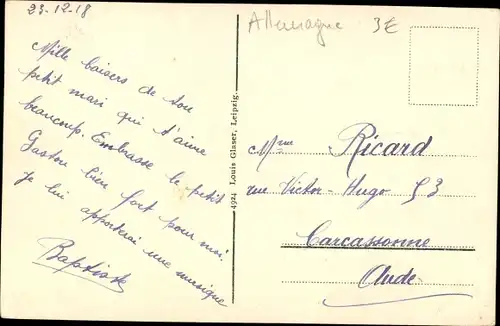 23-12-18
Mille baisers de ton
petit mari qui t'aime
beaucoup. Embrasse le petit
Gaston bien fort pour moi.
Je lui apporterai une musique
Baptiste
4924 Louis Glaser, Leipzig.
Allemagne 3€
Mme Ricard
rue Victor-Hugo 53
Carcassonne
Aude